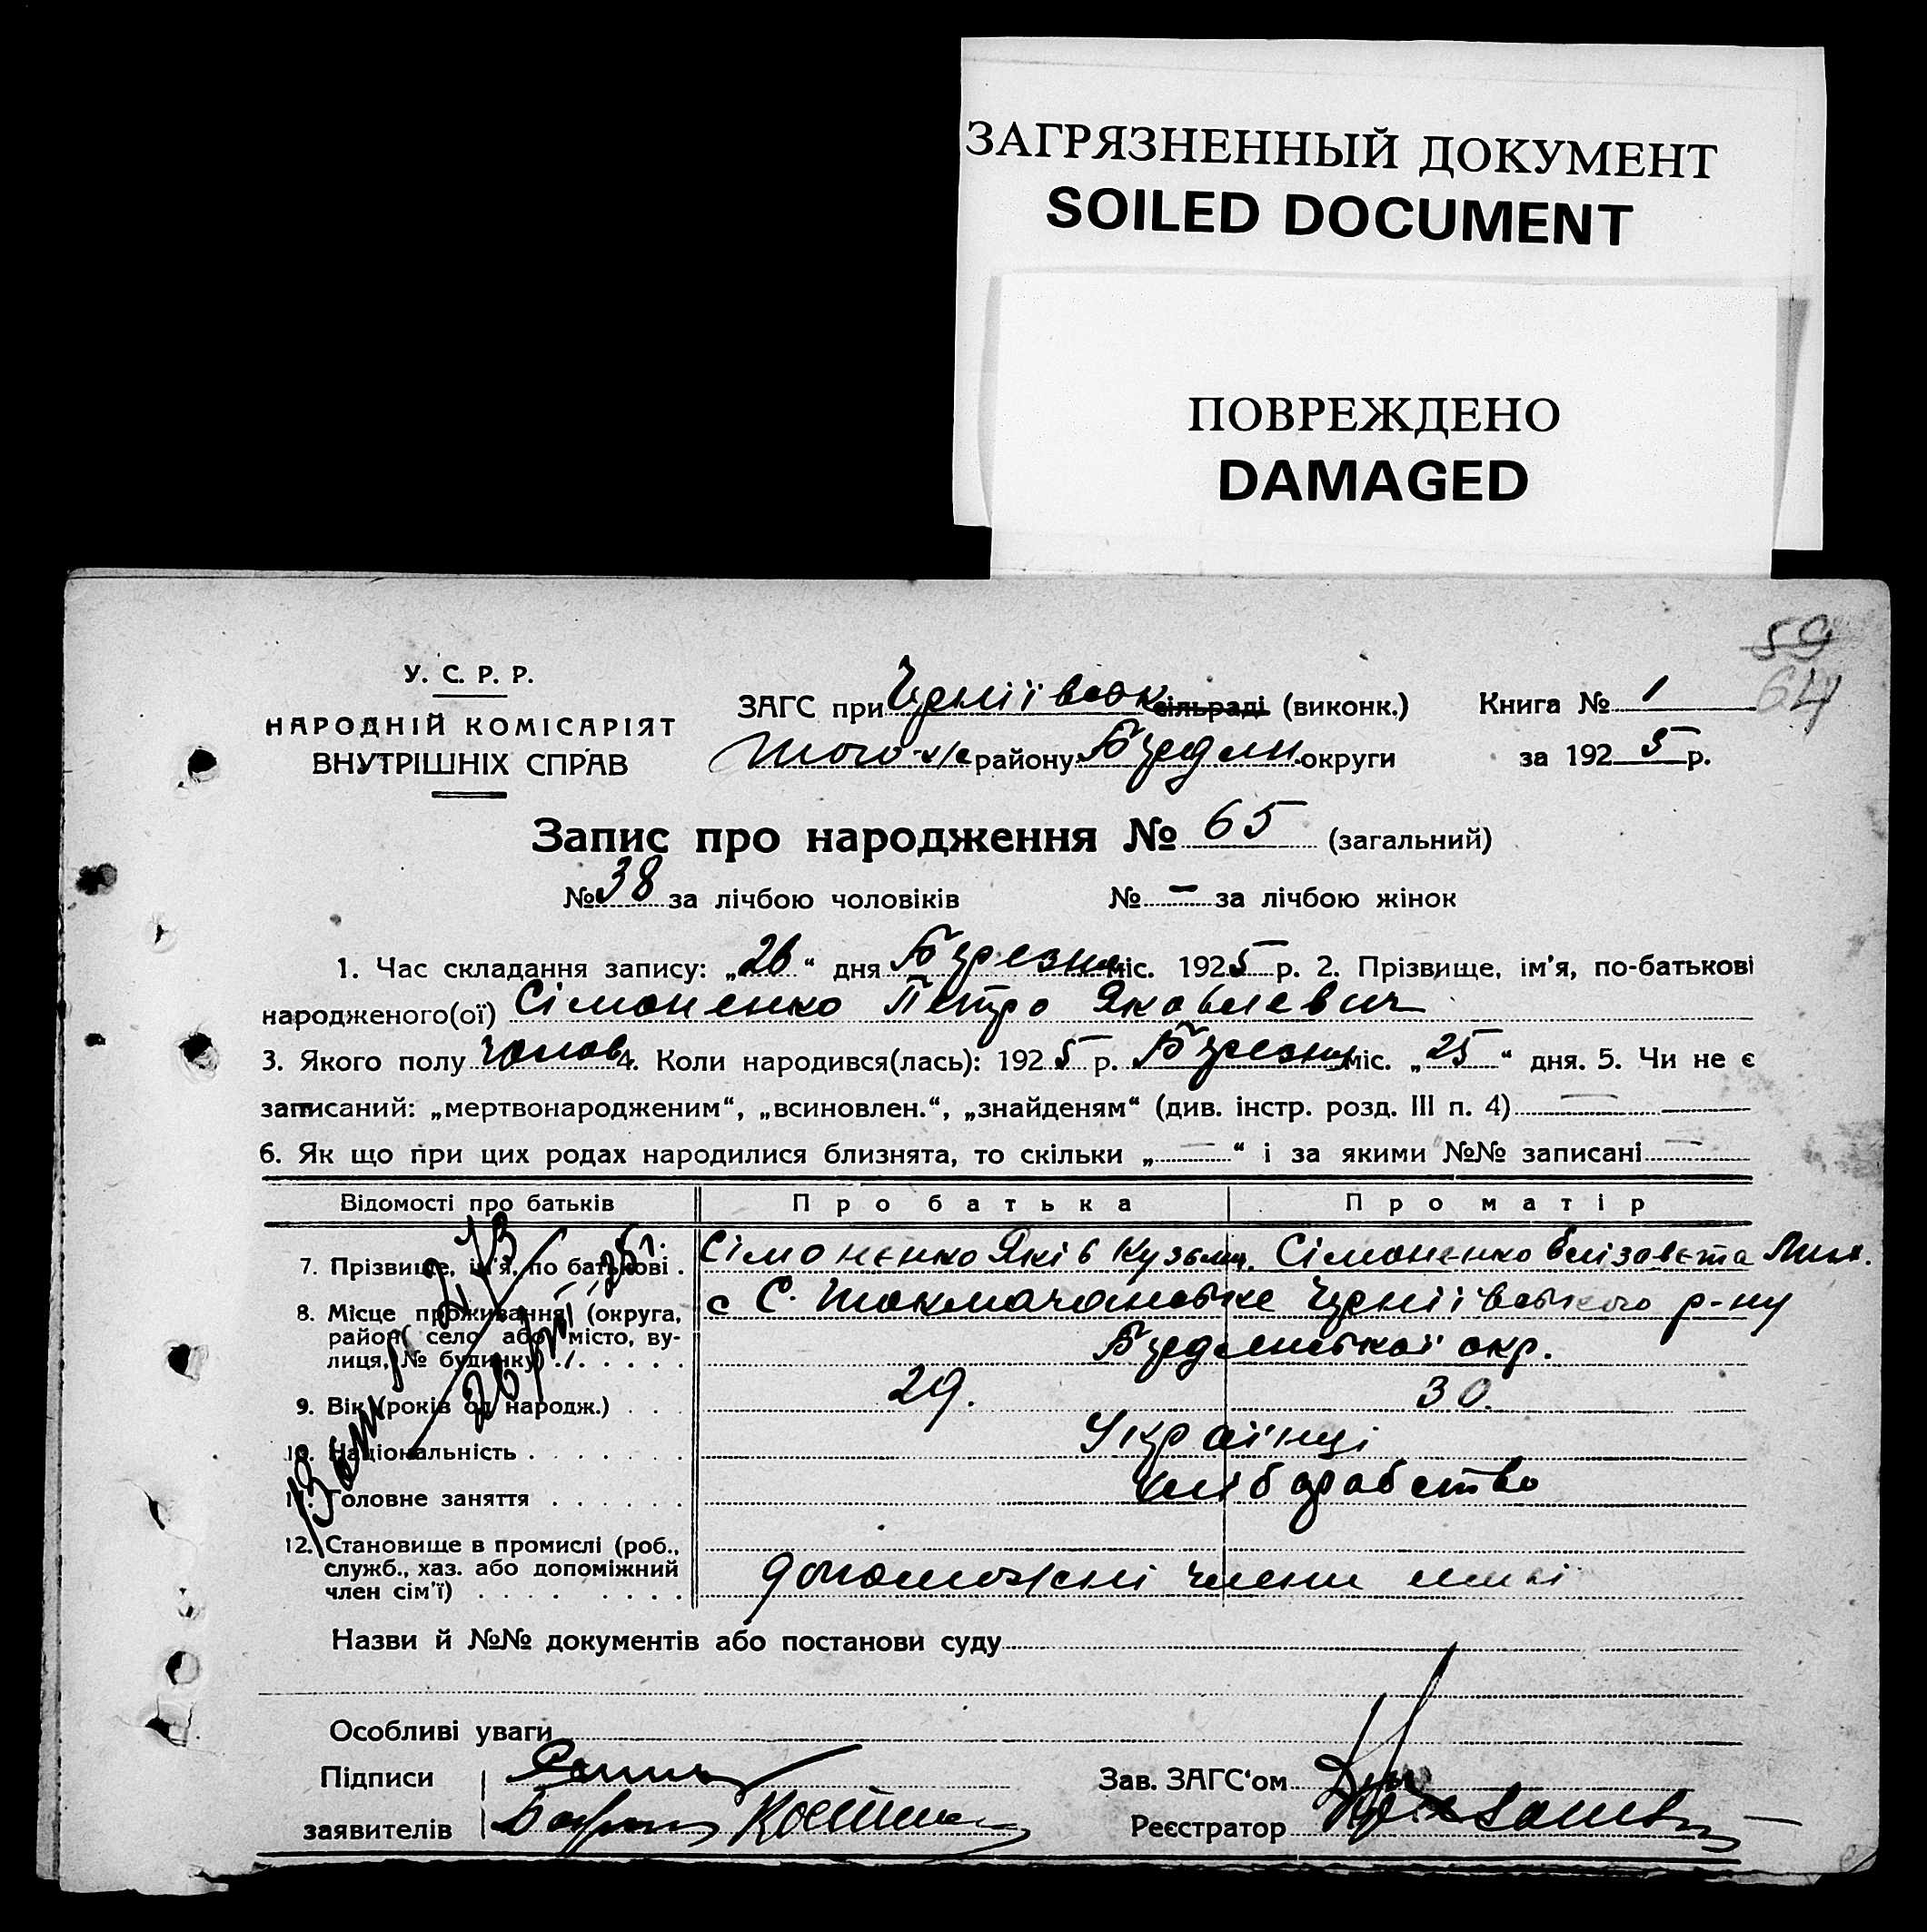 ЗАГРЯЗНЕННЫЙ ДОКУМЕНТ
SOILED DOCUMENT
ПОВРЕЖДЕНО
DAMAGED
59
64
У. С. Р. Р.
НАРОДНІЙ КОМІСАРІЯТ
ВНУТРІШНІХ СПРАВ
ЗАГС при сільраді (виконк.) Книга № 1
того-ж району округи за 1925 р.
Запис про народження № 65 (загальний)
№ 38 за лічбою чоловіків № — за лічбою жінок
1. Час складання запису: „26“ дня Березня міс. 1925 р. 2. Прізвище, ім'я, по-батькові
народженого(ої) Сімоненко Петро Яковлевич
3. Якого полу чолов 4. Коли народився(лась): 1925 р. Березня міс. „25“ дня. 5. Чи не є
записаний: „мертвонародженим“, „всиновлен.“, „знайденям“ (див. інстр. розд. III п. 4) —
6. Як що при цих родах народилися близнята, то скільки „—“ і за якими №№ записані —
Відомості про батьків Про батька Про матір
7. Прізвище, ім'я, по батькові . Сімоненко Яків Кузьм. Сімоненко Єлізавєта
8. Місце проживання (округа, район, село або місто, ву-лиця, № будинку) . . . . . . с С. Токмачанське Черніївського р-ну
окр.
9. Вік (років од народж.) . . . 29. 30.
10. Національність . . . . . . . Українці
11. Головне заняття . . . . . . хліборобство
12. Становище в промислі (роб., служб., хаз. або допоміжний член сім'ї) . . . . . . . . допоможні члени
Назви й №№ документів або постанови суду
Особливі уваги
Підписи
Зав. ЗАГС'ом
заявителів
Реєстратор